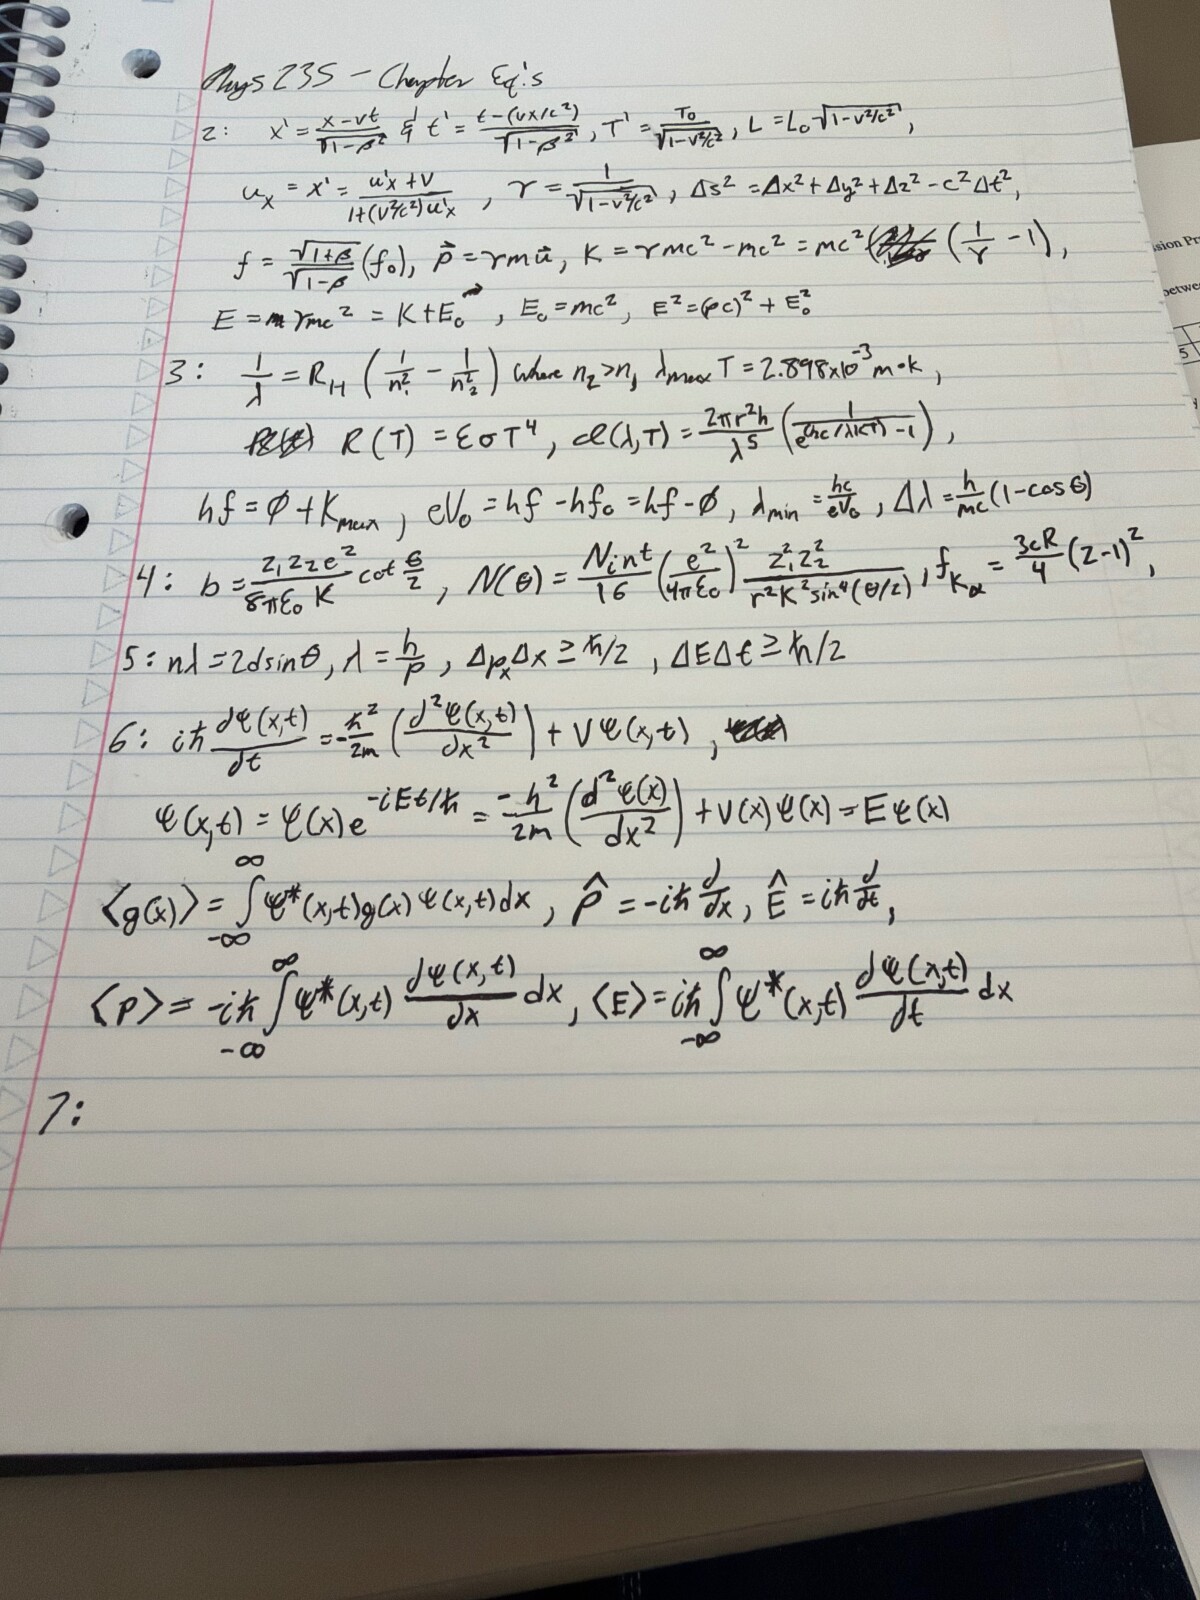 Phys 235 - Chapter Eq's
2: x' = (x-vt)/√(1-β²) & t' = (t-(vx/c²))/√(1-β²), T' = T₀/√(1-v²/c²), L = L₀√(1-v²/c²),
uₓ = x' = (u'x+v)/(1+(v²/c²)u'x), γ = 1/√(1-v²/c²), Δs² = Δx²+Δy²+Δz²-c²Δt²,
f = √(1+β)/√(1-β) (f₀), p⃗ = γmu⃗, K = γmc²-mc² = mc² (1/γ - 1),
E = γmc² = K+E₀, E₀ = mc², E² = (pc)² + E₀²
3: 1/λ = R_H (1/n₁² - 1/n₂²) where n₂>n₁ λmax T = 2.898x10⁻³ m·k,
R(T) = εσT⁴, (λ,T) = 2πr²h/λ⁵ (1/(e^(hc/λkT) -1)),
hf = φ + Kmax, eV₀ = hf - hf₀ = hf - φ, λmin = hc/eV₀, Δλ = h/mc (1-cosθ)
4: b = Z₁Z₂e²/8πε₀K cot θ/2, N(θ) = Nint/16 (e²/4πε₀)² Z₁²Z₂²/r²K²sin⁴(θ/2), f_Kα = 3cR/4 (Z-1)²,
5: nλ = 2dsinθ, λ = h/p, ΔpₓΔx ≥ ħ/2, ΔEΔt ≥ ħ/2
6: iħ dΨ(x,t)/dt = -ħ²/2m (d²Ψ(x,t)/dx²) + VΨ(x,t),
Ψ(x,t) = ψ(x)e^(-iEt/ħ) = -ħ²/2m (d²ψ(x)/dx²) + V(x)ψ(x) = Eψ(x)
⟨g(x)⟩ = ∫_{-∞}^{∞} Ψ*(x,t)g(x)Ψ(x,t)dx, p̂ = -iħ d/dx, Ê = iħ d/dt,
⟨p⟩ = -iħ ∫_{-∞}^{∞} Ψ*(x,t) dΨ(x,t)/dx dx, ⟨E⟩ = iħ ∫_{-∞}^{∞} Ψ*(x,t) dΨ(x,t)/dt dx
7:
sion Pr
betwe
5